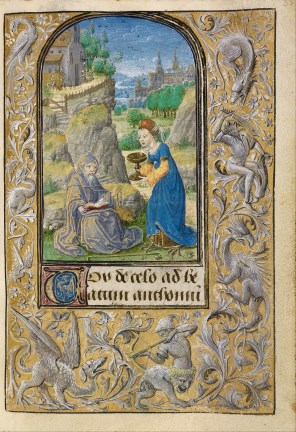 Vox de celo ad be
atum anthoniu